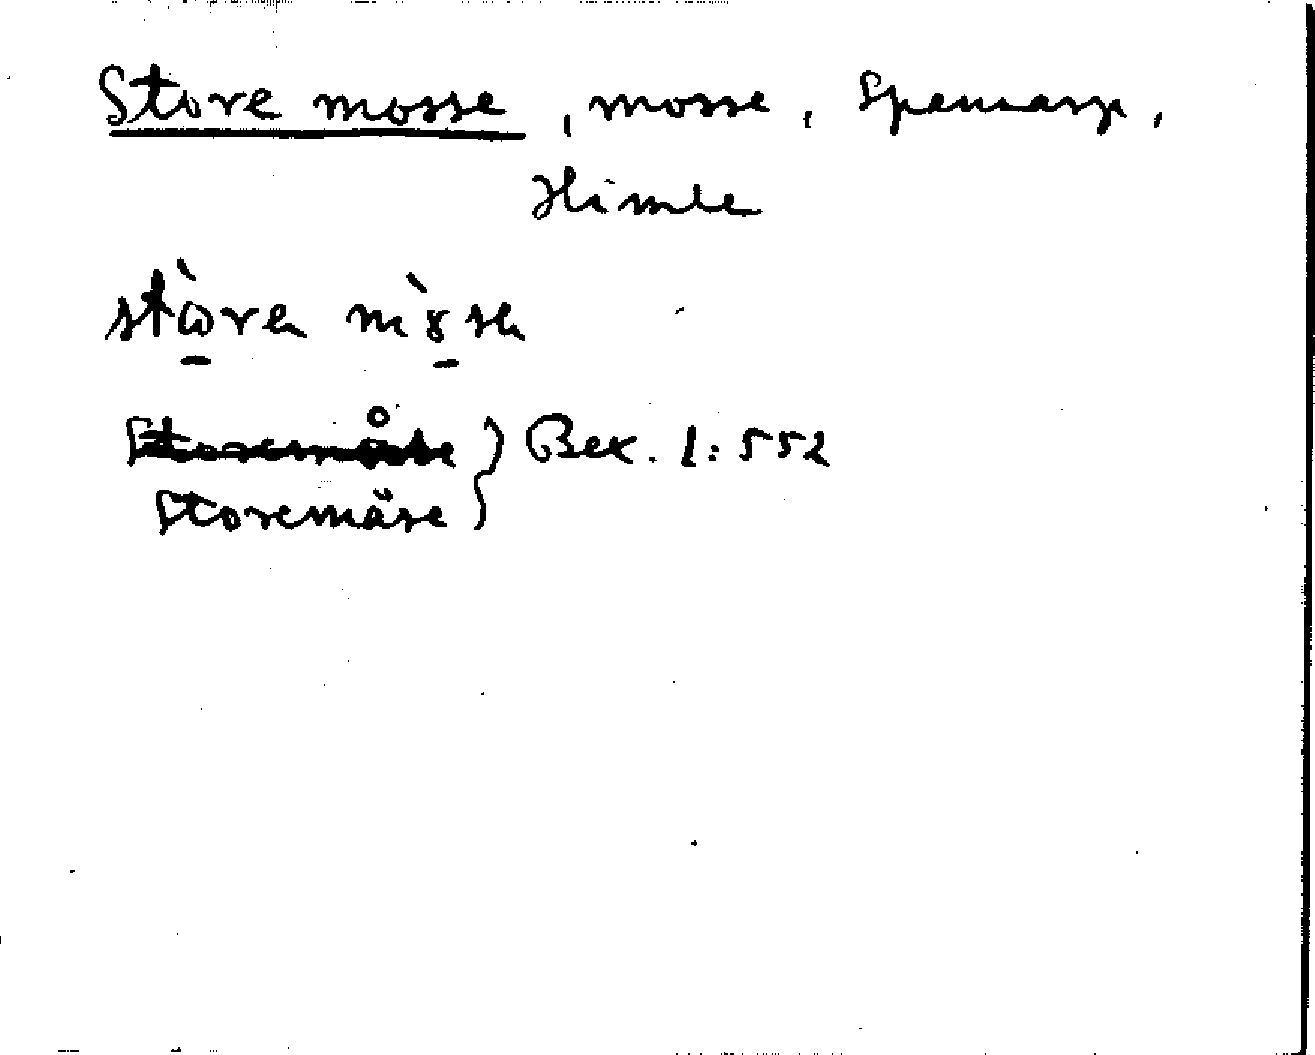 Store mosse, mosse, Spannarp,
Himle
stòre mòse
Storemåse } Bex. 1:552
Storemäse